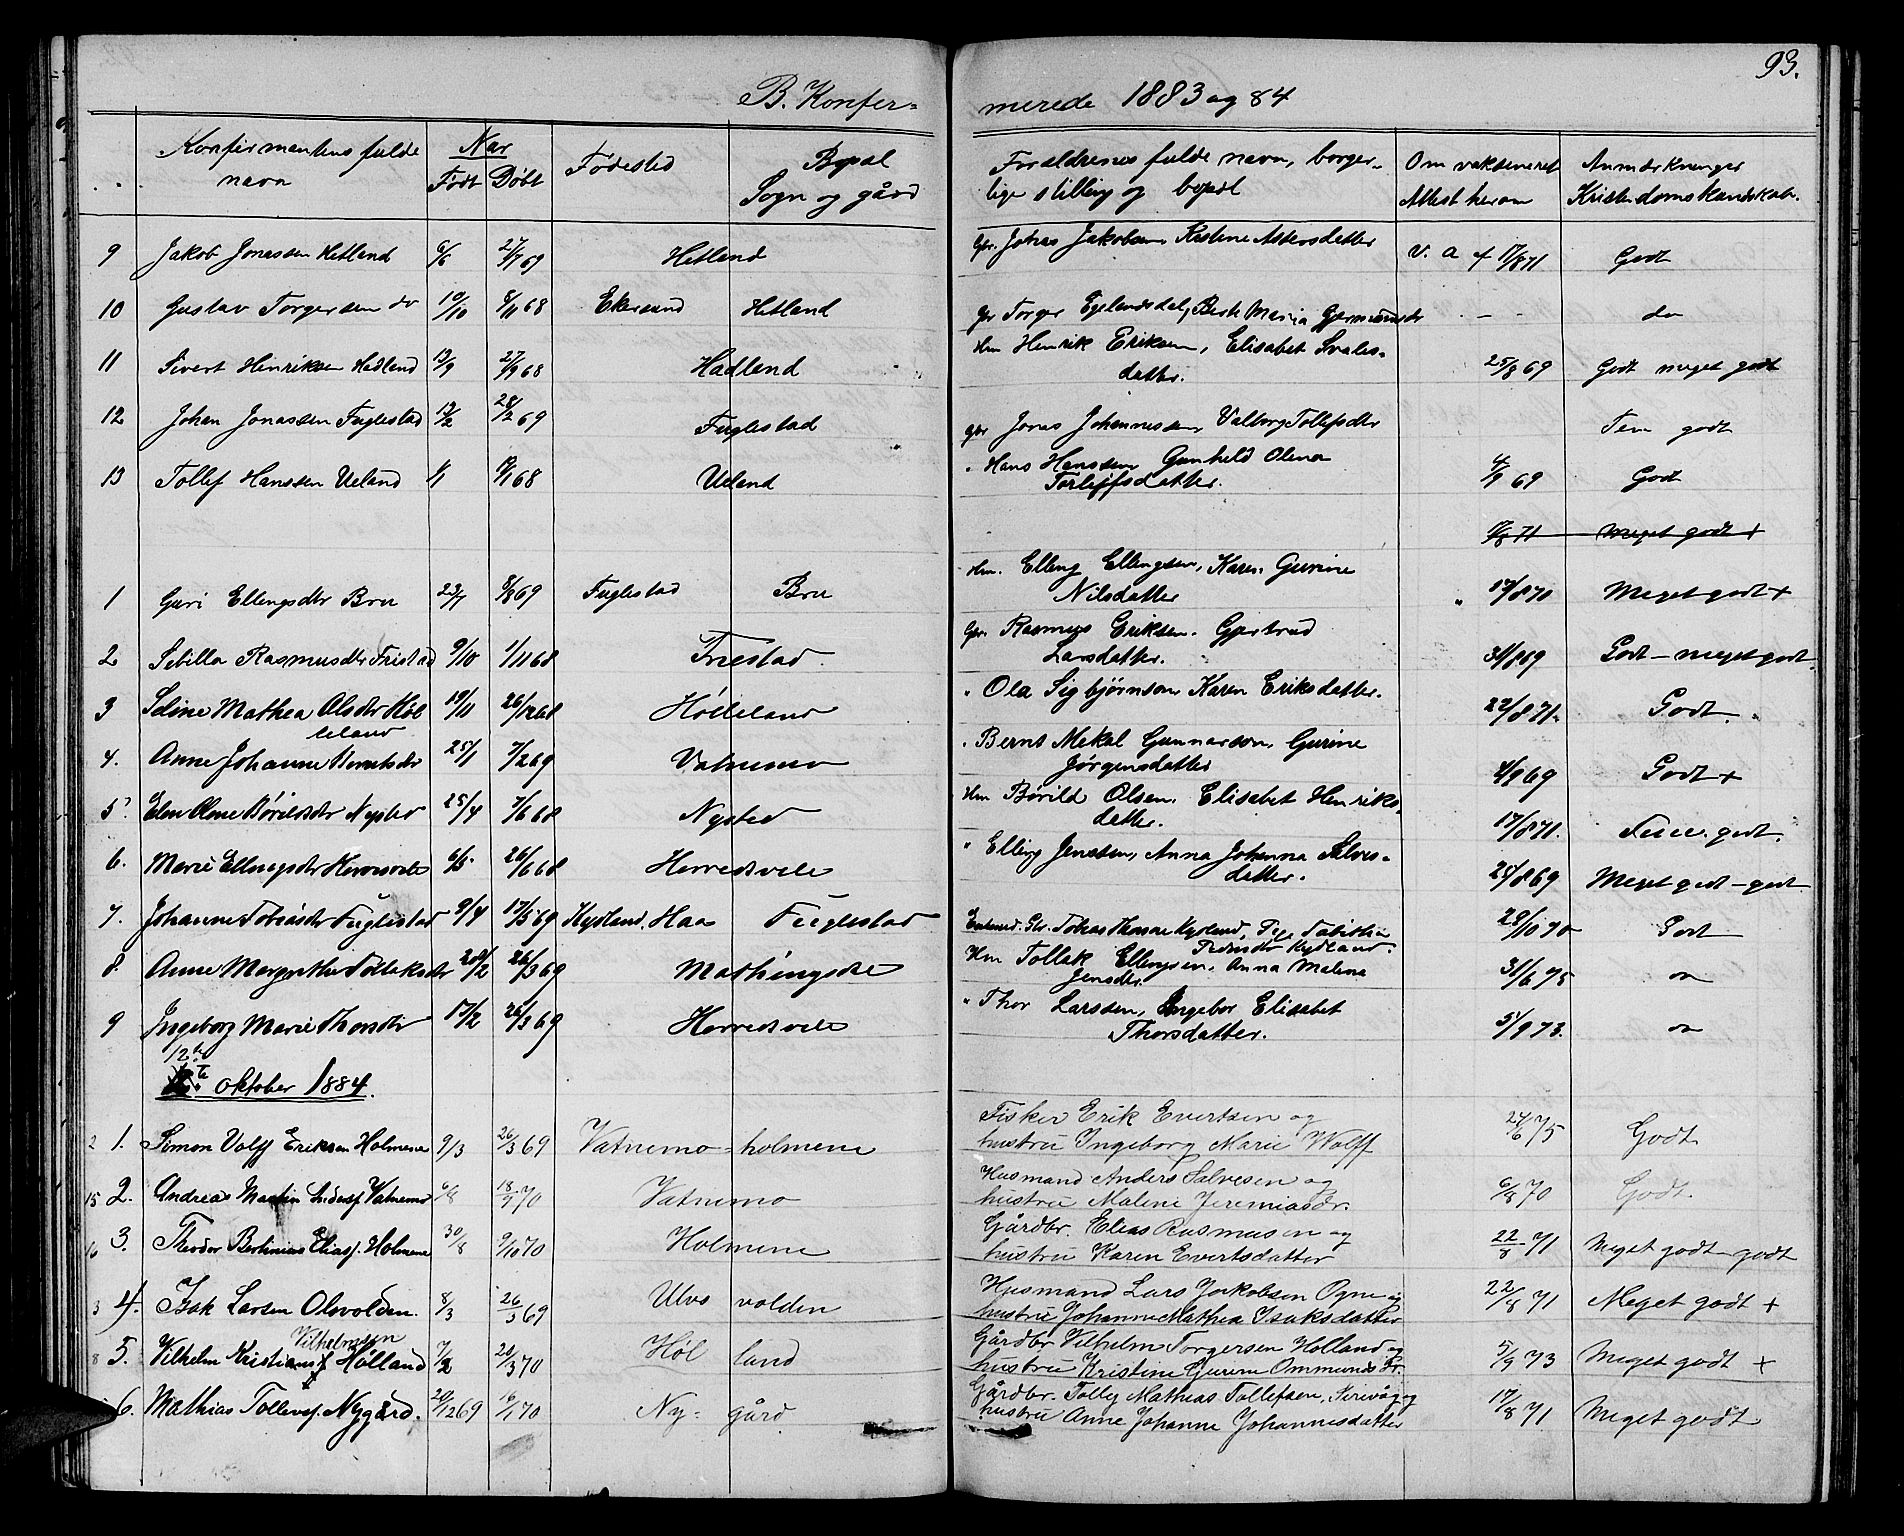 93.
B. Konfer= merede 1883 og 84
Konfirmantens fulde navn | Når Født | Døbt | Fødested | Bopæl Sogn og gård | Forældrenes fulde navn, borger-lige stilling og bopæl | Om vaksineret Attest herom | Anmærkninger Kristendomskundskab.
9 Jakob Jonassen Hetland 6/6 27/7 69 Hetland Gbr. Johas Jakobsen Kristine Asbersdatter V. a f 17/8 71 Godt
10 Gustav Torgersen do 10/10 8/11 68 Ekersund Hetland Gbr Torger Egelandsdal, Berte Maria Gjermundsdr - - do
11 Sivert Henriksen Hadland 13/9 27/9 68 Hadland Hm Henrik Eriksen, Elisabet Svales-
datter. 25/8 69 Godt meget godt
12 Johan Jonassen Fuglestad 12/2 28/2 69 Fuglestad gbr Jonas Johannessen Valborg Tollefsdtr Tem godt
13 Tollef Hanssen Ueland 1/1 68 Ueland " Hans Hanssen Gunhild Olena
Torleffsdatter. 4/9 69 Godt
17/8 71 Meget godt +
1 Guri Ellengsdtr Bru 23/7 8/8 69 Fuglestad Bru Hm. Elleng Ellengsen, Karen Gurine
Nilsdatter " 17/8 70 Meget godt +
2 Sibilla Rasmusdtr Fristad 9/10 1/11 68 Friestad Gbr. Rasmus Eriksen. Gjertrud
Larsdatter. 31/8 69 Godt - meget godt.
3 Seline Mathea Olsdtr Høl
leland 19/11 26/12 68 Hølleland " Ola Sigbjørnson Karen Eriksdatter. 22/8 71. Godt.
4. Anne Johanne Berntsdr 25/1 7/2 69 Vatnemo " Bernt Mekal Gunnarson, Gurine
Jørgensdatter 4/9 69 Godt +
5. Elen Oline Børildsdr Nysted 25/4 7/6 68 Nysted Hm Børild Olsen. Elisabet Henriks
datter. 17/8 71. Tem. godt.
6. Marie Ellingsdtr Herredsvele 6/5 26/6 68 Herredsvele " Elling Jenssen, Anna Johanna Salves-
datter. 25/8 69 Meget godt - godt
7. Johanne Tobiasdr Fuglestad 9/4 17/5 69 Kydland, Haa Fuglestad Enkemd. Gbr. Tobias Thomsen Kydland, Pige Tabithia
Pedersdtr Kydland. 29/10 70 Godt
8. Anne Margrethe Tollaksdr 28/2 26/3 69 Mathingsdal Hm Tollak Ellingsen. Anna Malene
Jensdtr. 31/6 75 do
9 Ingeborg Marie Thorsdtr 17/2 26/3 69 Herredsvele " Thor Larssen, Ingebor Elisabet
Thorsdatter. 5/9 73. do
12te
oktober 1884.
2 1. Simon Volff Eriksen Holmene 9/3 26/3 69 Vatnemo = holmene Fisker Erik Evertsen og
hustru Ingeborg Marie Wolff 24/6 75 Godt
15 2. Andreas Martin Anders. Vatnemo 6/8 18/9 70 Vatnemo Husmand Anders Salvesen og
hustru Malene Jeremiasdr. 6/8 70 Godt.
16 3. Theodor Bertinius Elias. Holmene 30/8 9/10 70 Holmene Gårdbr. Elias Rasmusen og
hustru Karen Evertsdatter 22/8 71 Meget godt - godt
3 4. Isak Larsen Olsvolden. 8/3 26/3 69 Ulvs volden Husmand Lars Jakobsen Ogne og
hustru Johanne Mathea Isaksdatter 22/8 71 Meget godt +
8 5. Vilhelm Kristian Vilhelmsen Hølland 7/2 20/3 70 Høl land Gårdbr Vilhelm Torgersen Holland og
hustru Kristine Gurine Ommundsdr. 5/9 73 Meget godt +
6. Mathias Tollevs. Nygård. 20/12 69 16/1 70 Ny= gård Gårdbr. Tollev Mathias Tollefsen, Sirevåg og
hustru Anne Johanne Johannesdatter 17/8 71 Meget godt